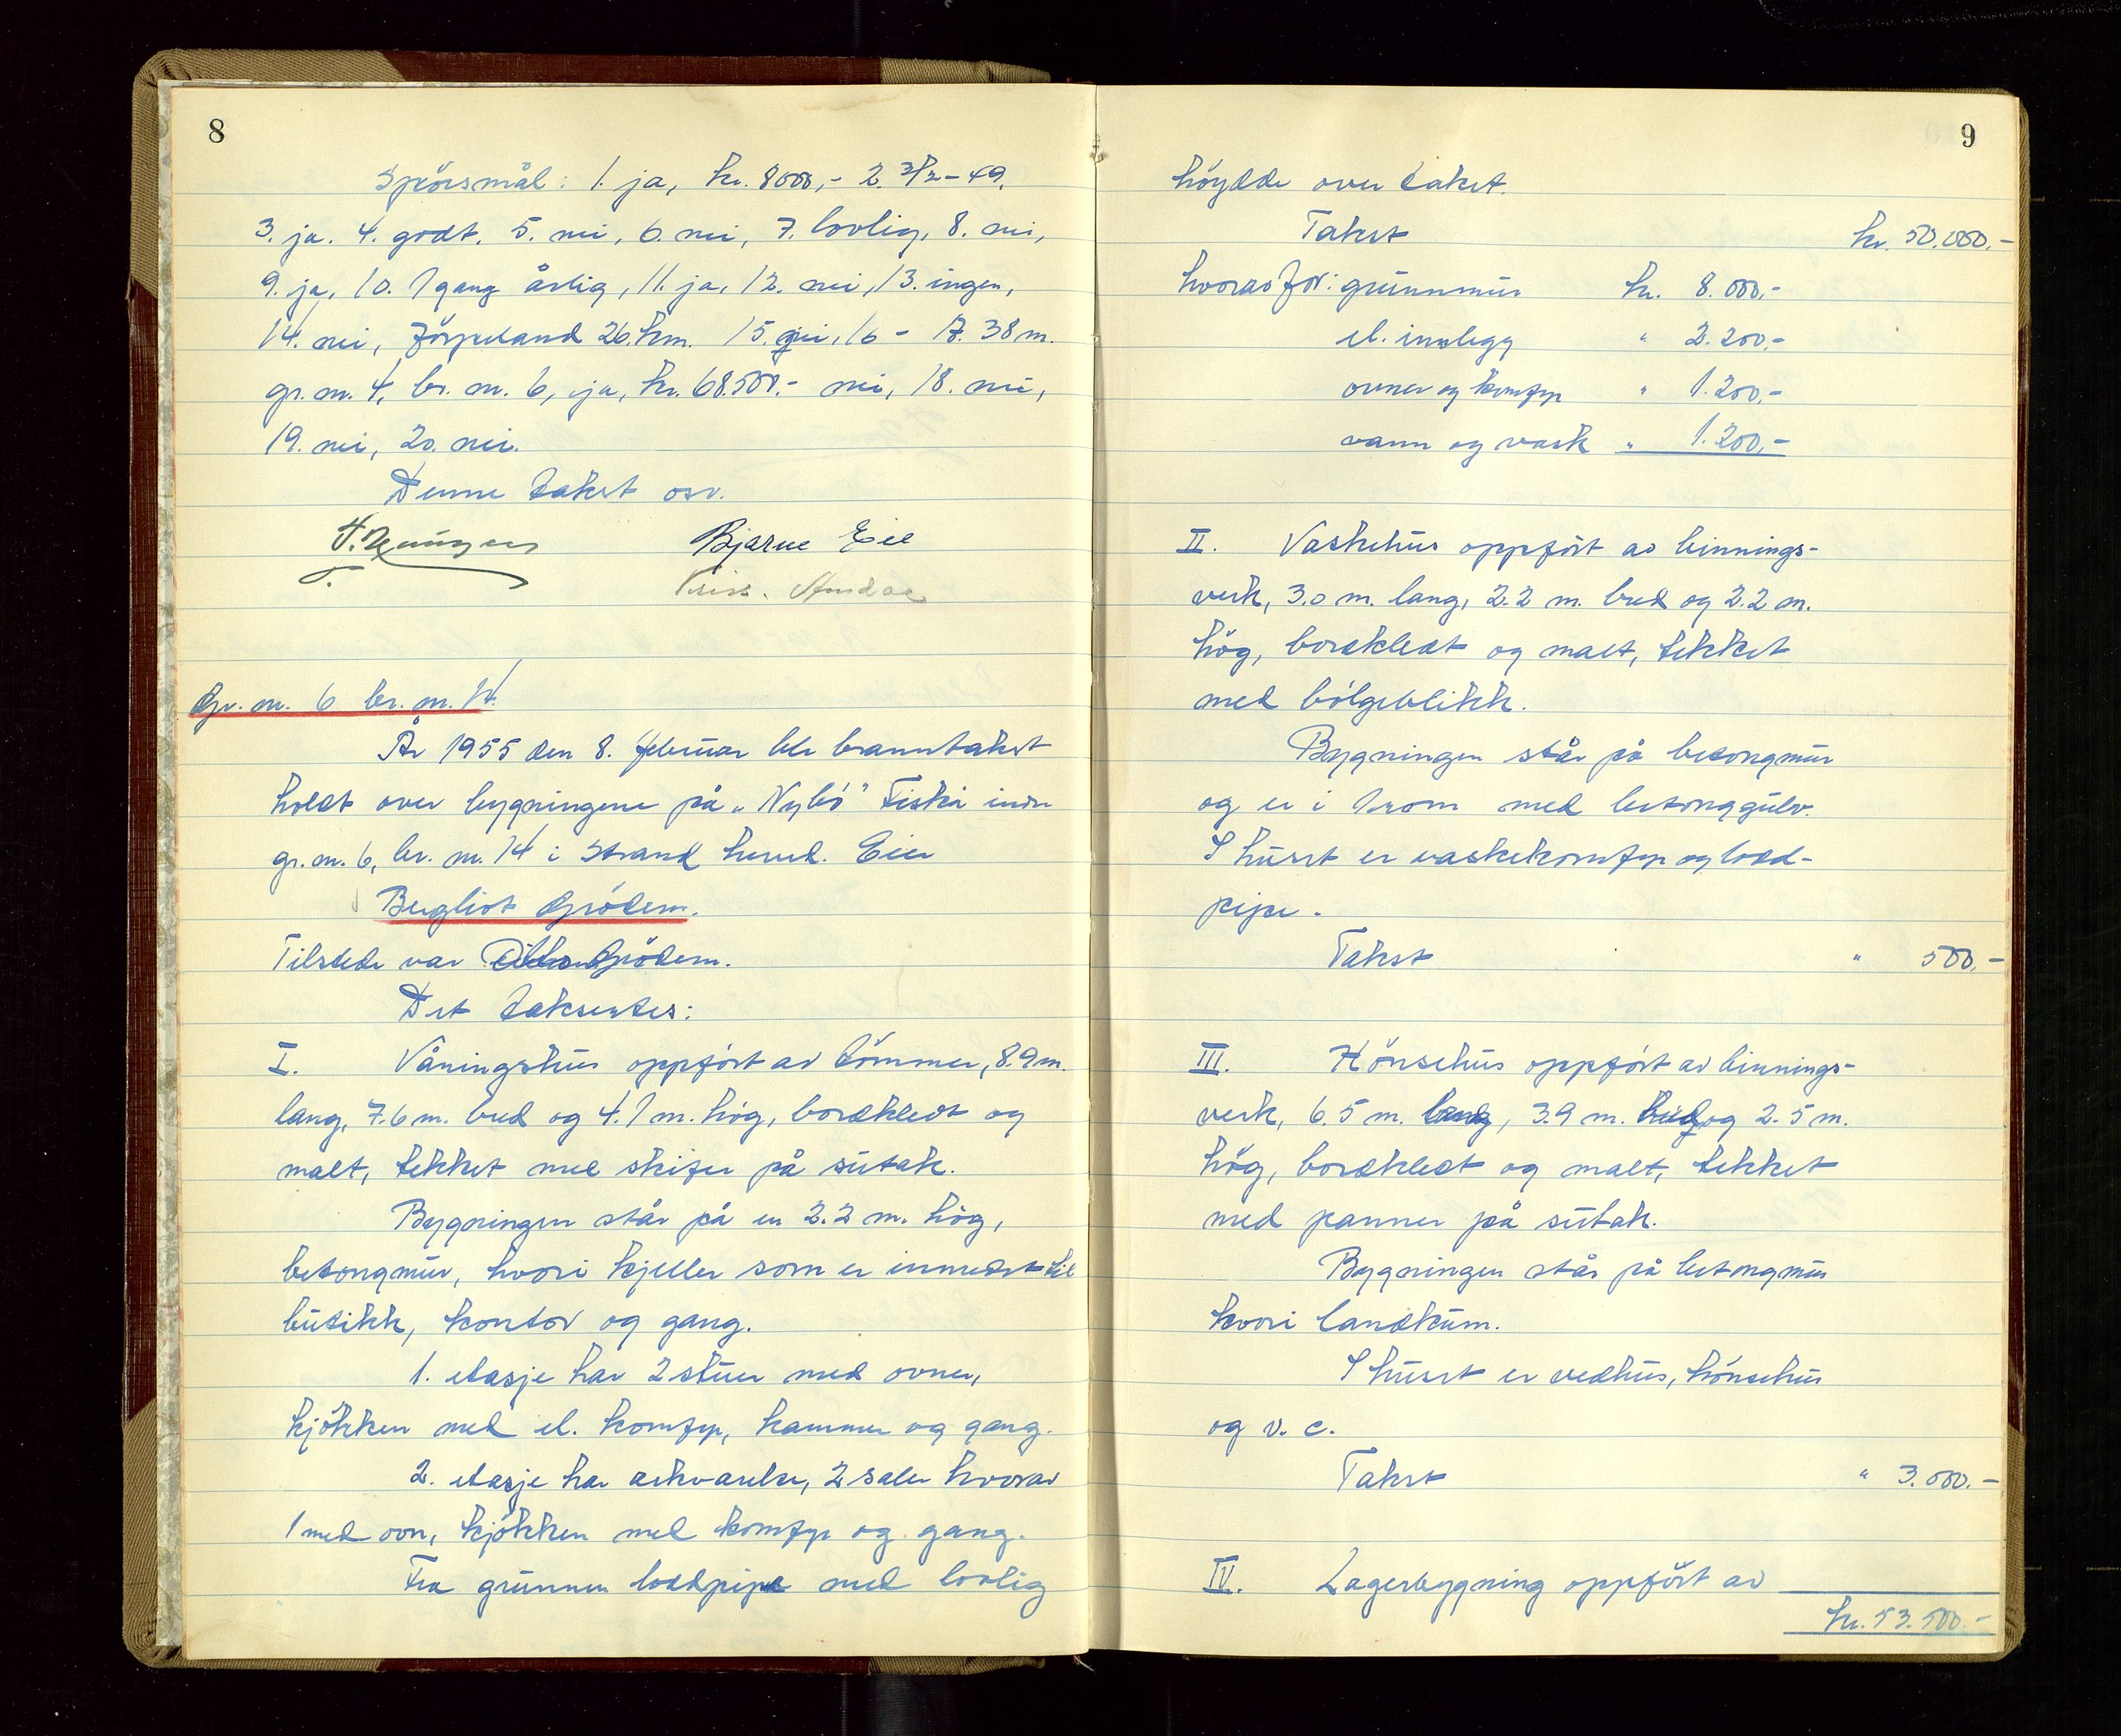 8
Spörsmål: 1. ja, kr. 8000,- 2. 3/2-49.
3. ja. 4. godt. 5. nei, 6. nei, 7. lovlig, 8. nei,
9. ja, 10. 1 gang årlig, 11. ja, 12. nei, 13. ingen,
14. nei, Jörpeland 26. km. 15. nei, 16 - 17. 38 m.
gr. nr. 4, br. nr. 6, ja, kr. 68.500.- nei, 18. nei,
19. nei, 20. nei.
Denne takst osv.
Bjarne Eie
Amdal
Gr. nr. 6 br. nr. 14.
År 1955 den 8. februar ble branntakst
holdt over bygningene på „Nybö" Fiskå indre
gr. nr. 6, br. nr. 14 i Strand herred. Eier
Bergliot Grödem.
Tilstede var Grödem.
Det taksertes:
I. Våningshus oppfört av tömmer, 8.9 m.
lang, 7.6 m. bred og 4.1 m. hög, bordkledt og
malt, tekket med skifer på sutak.
Bygningen står på en 2.2 m. hög,
betongmur, hvori kjeller som er innredet til
butikk, kontor og gang.
1. etasje har 2 stuer med ovner,
kjökken med el. komfyr, kammer og gang.
2. etasje har arkværelse, 2 saler hvorav
1 med ovn, kjökken med komfyr og gang.
Fra grunnen loddpipe med lovlig
9
höydde over taket.
Takst kr. 50.000.-
hvorav for: grunnmur kr. 8.000,-
el. innlegg " 2.200,-
ovner og komfyr " 1.200,-
vann og vask " 1.200,-
II. Vaskehus oppfört av binnings-
verk, 3.0 m. lang, 2.2 m. bred og 2.2 m.
hög, bordkledt og malt, tekket
med bölgeblikk.
Bygningen står på betongmur
og er i 1 rom med betonggulv.
I huset er vaskekomfyr og lodd-
pipe.
Takst " 500.-
III. Hönsehus oppfört av binnings-
verk, 6.5 m. lang, 3.9 m. bred og 2.5 m.
hög, bordkledt og malt, tekket
med panner på sutak.
Bygningen står på betongmur
hvori landkum.
I huset er vedhus, hönsehus
og v. c.
Takst " 3.000.-
IV. Lagerbygning oppfört av
kr. 53.500.-